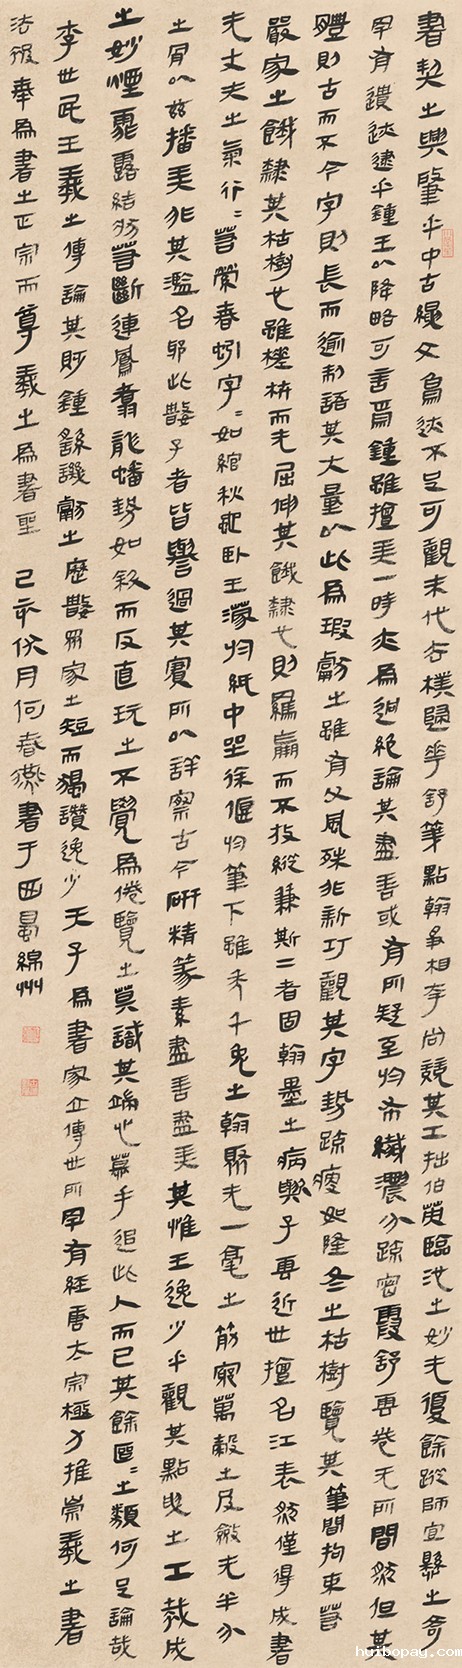 書契之興肇乎中古繩文鳥跡不足可觀末代去樸歸華舒箋點翰爭相夸尚競其工拙伯英臨池之妙無復餘蹤師宜懸之奇
罕有遺跡逮乎鍾王以降略可言焉鍾雖擅美一時亦為迥絕論其盡善或有所疑至於布纖濃分疏密霞舒雲卷無所間然但其
體則古而不今字則長而逾制語其大量以此為瑕獻之雖有父風殊非新巧觀其字勢疏瘦如隆冬之枯樹覽其筆間拘束若
嚴家之餓隸其枯樹也雖槎枿而無屈伸其餓隸也則羈羸而不放縱兼斯二者固翰墨之病歟子雲近世擅名江表然僅得成書
無丈夫之氣行〻若縈春蚓字〻如綰秋蛇臥王濛於紙中坐徐偃於筆下雖禿千兔之翰聚無一毫之筋窮萬穀之皮斂無半分
之骨以茲播美非其濫名邪此數子者皆譽過其實所以詳察古今研精篆素盡善盡美其惟王逸少乎觀其點曳之工裁成
之妙煙霏露結狀若斷連鳳翥龍蟠勢如斜而反直玩之不覺為倦覽之莫識其端心慕手追此人而已其餘區〻之類何足論哉
李世民王羲之傳論其貶鍾繇譏獻之歷數眾家之短而獨讚逸少天子為書家立傳世所罕有經唐太宗極力推崇羲之書
法後奉為書之正宗而尊羲之為書聖 己亥伏月何春書于西蜀綿州
huibopay.com